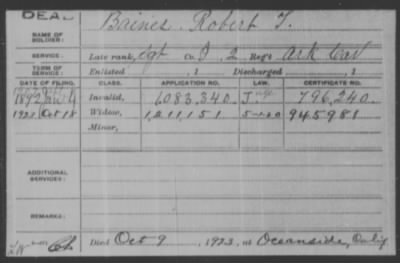 DEAD
NAME OF SOLDIER: Baines, Robert T.
SERVICE: Late rank, Sgt Co. I, 2 Reg't Ark Cav
TERM OF SERVICE: Enlisted , 1 Discharged , 1
DATE OF FILING. CLASS. APPLICATION NO. LAW. CERTIFICATE NO.
1892 Invalid, 1,083,340 796,240
1923 Oct 18 Widow, 1,211,151 5-1-20 945981
Minor,
ADDITIONAL SERVICES:
REMARKS:
Died Oct 9, 1923, at Oceanside, Calif